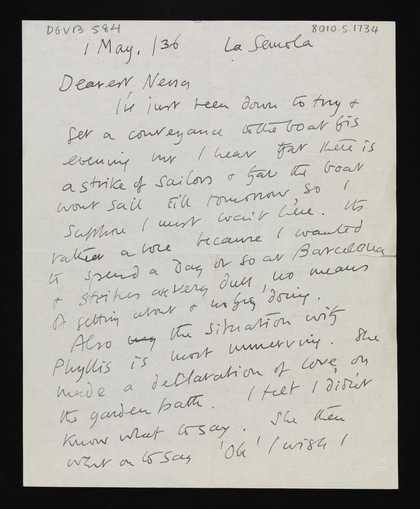 DGVB 584 8010.5.1734
1 May. /36 La Semola
Dearest Nessa
I've just been down to try &
get a conveyance to the boat this
evening but I hear that there is
a strike of sailors & that the boat
wont sail till tomorrow so I
suppose I must wait here. Its
rather a bore because I wanted
to spend a day or so at Barcelona
& strikes are very dull, no means
of getting about & nothing doing.
Also the situation with
Phyllis is most unnerving. She
made a declaration of love on
the garden path. I felt I didn't
know what to say. She then
went on to say 'Oh' I wish I